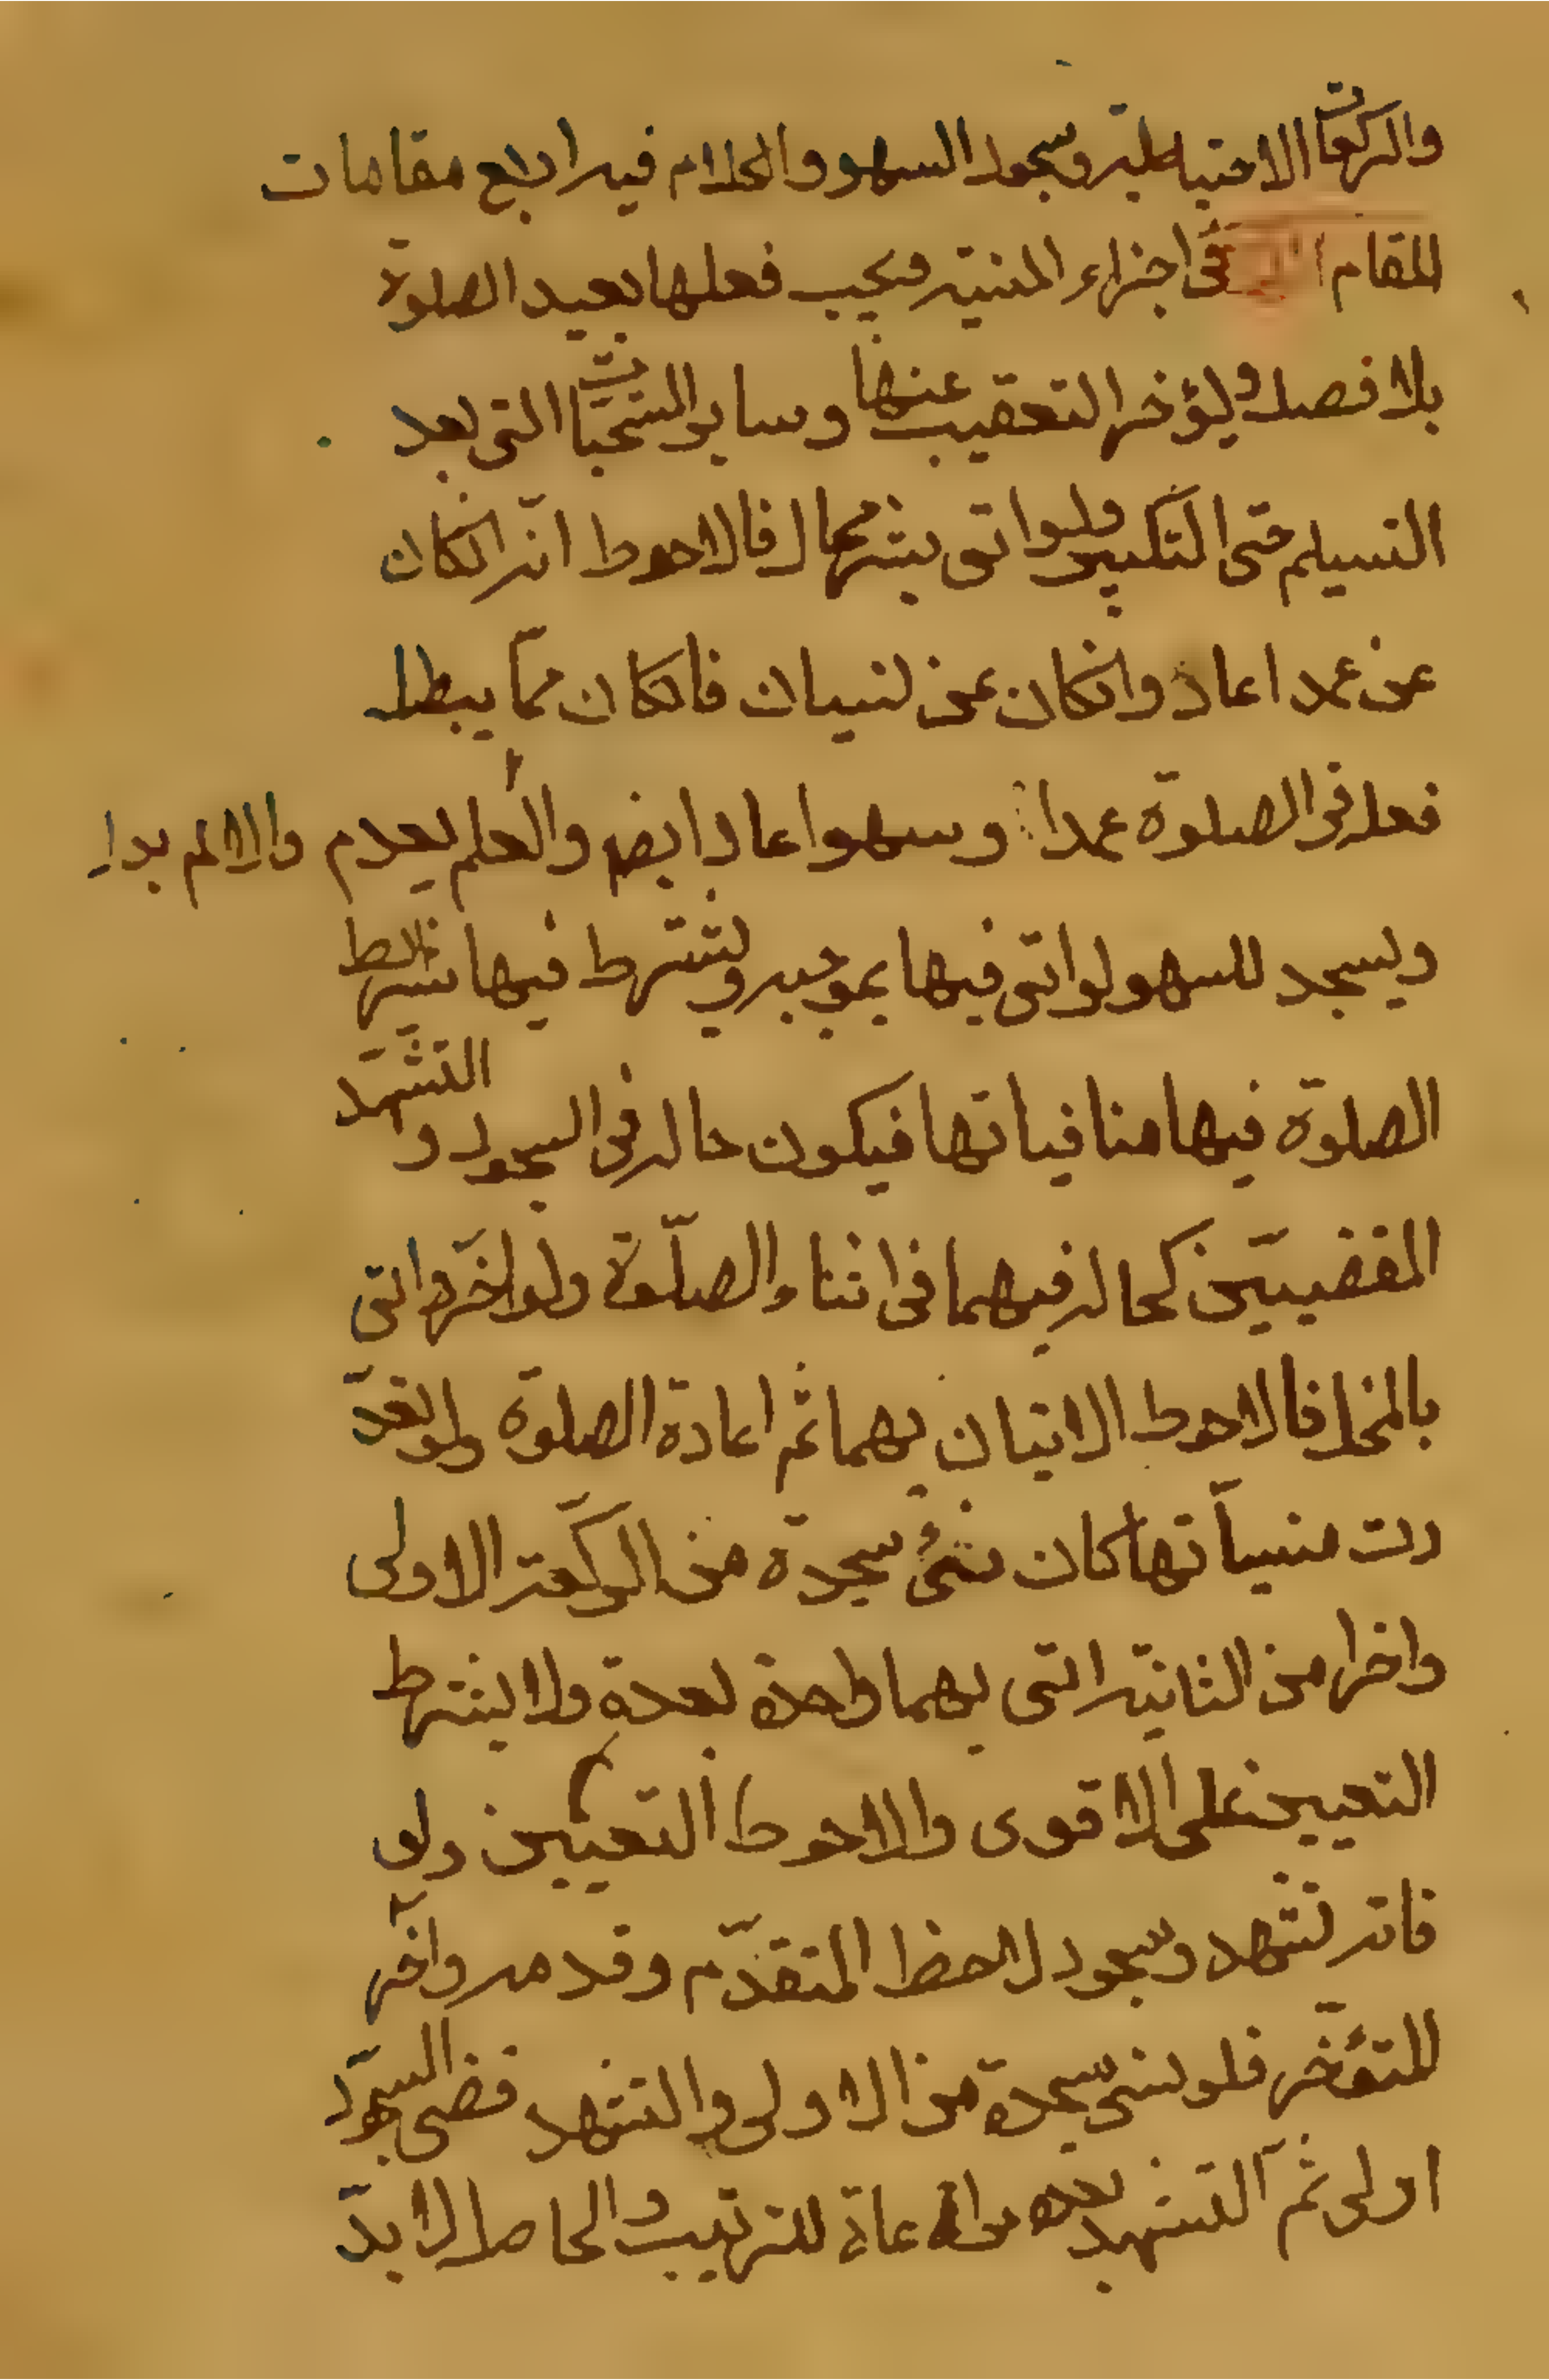 والركعات الاحتياطية وسجود السهو والكلام فيه اربع مقامات
المقام في اجزاء المنسية ويجب فعلها بعيد الصلوة
بلا فصل ويؤخر التعقيب عنها وساير المستحبات التي بعد
التسيلم حتى التكبير ولو اتى بشئ محال فالاحوط انه انكان
عن عمد اعاد وانكان عن نسيان فانكان مما يبطل
فعله في الصلوة عمدا وسهوا عاد ايضا والعلم بعدم والا لم بدا
ويسجد للسهو لو اتى فيها بموجبه ويشترط فيها شرائط
الصلوة فيها منافياتها فيكون حاله في السجود والتشهد
المقضيين كحاله فيهما في اثناء الصلوة ولو اخر واتى
بالمخل فالاحوط الاتيان بهما ثم اعادة الصلوة ولو تعد
دت منسياتها كان نسى سجدة من الركعة الاولى
واخرا من الثانية اتى بهما واحدة بعدة ولا يشترط
التعيين على الاقوى والاحوط التعيين ولو
فاته تشهد وسجود لاحظ المتقدم وقدمه واخر
للمتؤخر فلو نسى سجدة من الاولى والتشهد قضى السجود
اولى ثم التشهد بعده مراعاة للترتيب والحاصل لا بد